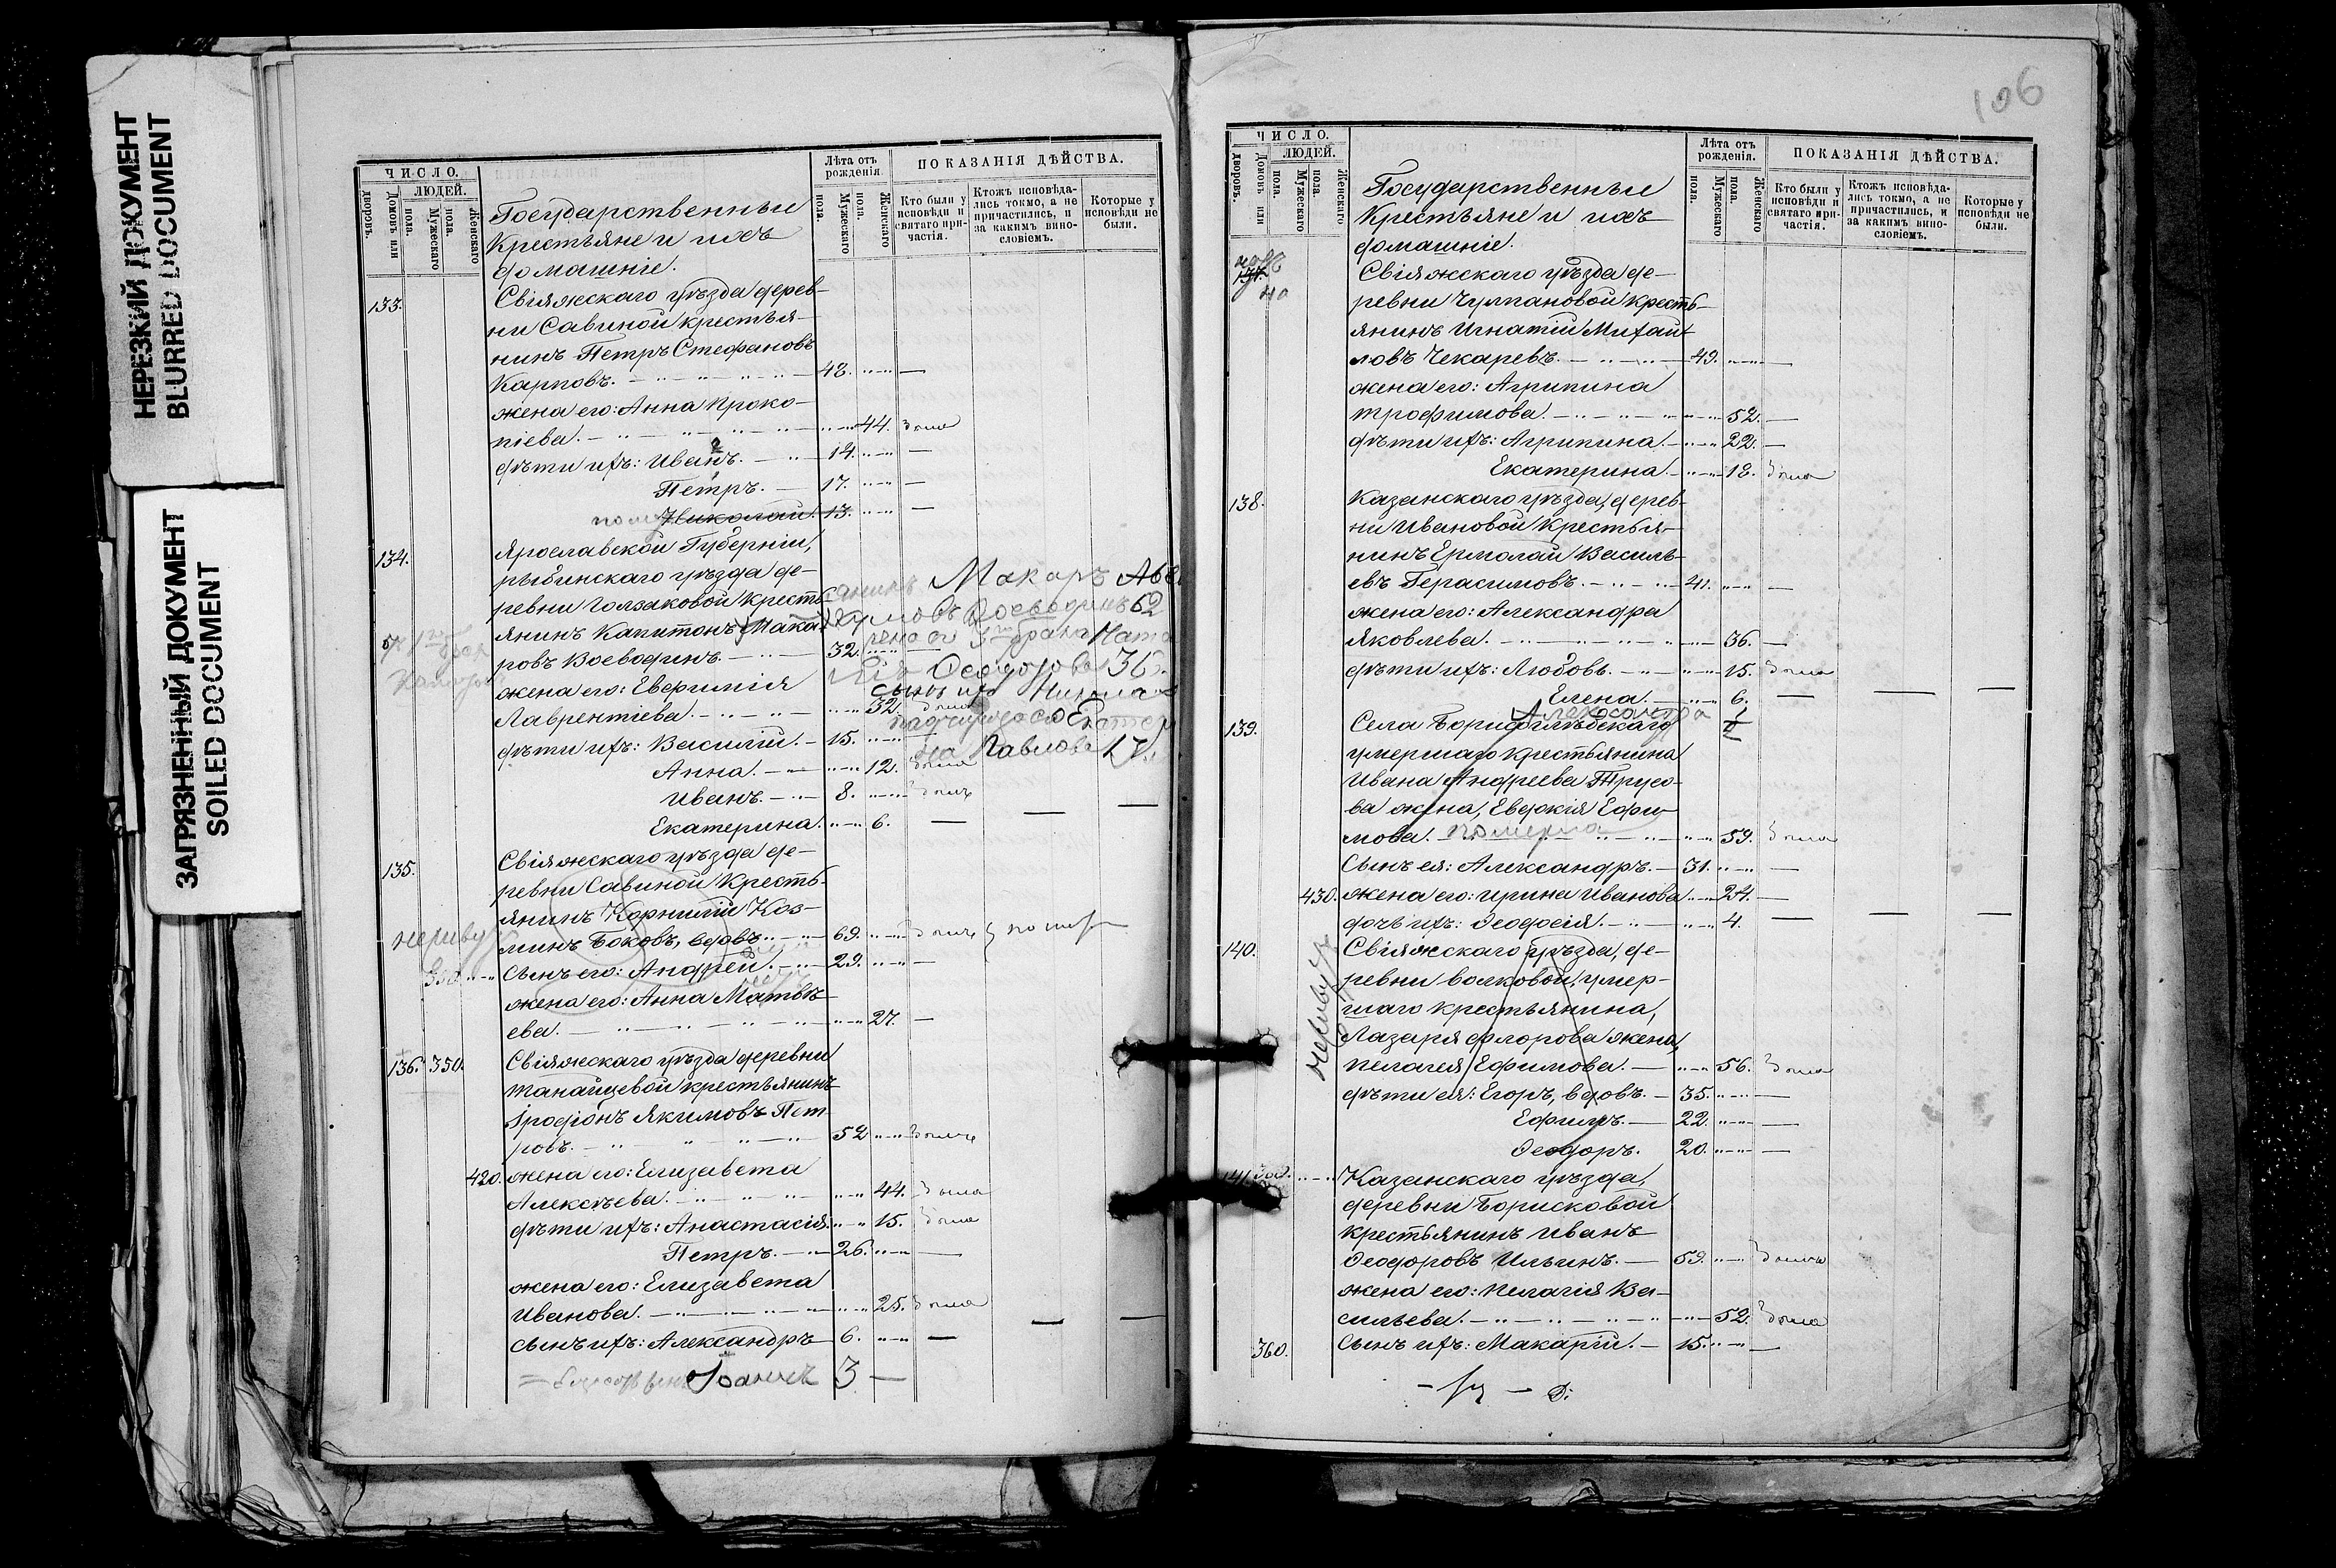 НЕРЕЗКИЙ ДОКУМЕНТ
BLURRED DOCUMENT
ЗАГРЯЗНЕННЫЙ ДОКУМЕНТ
SOILED DOCUMENT
ЧИСЛО.
Домовъ или дворовъ.
ЛЮДЕЙ.
Мужескаго пола.
Женскаго пола.
Государственныи
крестьяне и ихъ
домашніе.
Лѣта отъ рожденія
Мужескаго пола.
Женскаго пола.
ПОКАЗАНІЯ ДѢЙСТВА.
Кто были у исповѣди и святаго причастія.
Ктожъ исповѣдались токмо, а не причастились, и за какимъ винословіемъ.
Которые у исповѣди не были.
133. Свіяжскаго уѣзда дерев-
ни Савиной крестья-
нинъ Петръ Стефановъ
Карповъ. 48.
жена его: Анна Проко-
піева. 44. была
дѣти ихъ: Иванъ. 14.
Петръ. 17.
Николай. 13.
134. Ярославской Губерніи,
рыбинскаго уѣзда де-
ревни Голзаковой кресть-
янинъ Капитонъ Мака-
ровъ Воеводинъ. 32.
Макаръ
Воеводинъ 62
Ѳеодорова 36.
Павлова 17.
жена его: Евфимія
Лаврентіева. 32. была
дѣти ихъ: Василій. 15.
Анна. 12. была
Иванъ. 8. былъ
Екатерина. 6.
135. Свіяжскаго уѣзда де-
ревни Савиной кресть-
янинъ Корнилій Коз-
минъ Боковъ, вдовъ. 69. былъ
сынъ его: Андрей. 29.
жена его: Анна Матвѣ-
ева. 27.
136. 350. Свіяжскаго уѣзда деревни
Танайцевой крестьянинъ
Іродіонъ Якимовъ Пет-
ровъ. 52 былъ
420. жена его: Елизавета
Алексѣева. 44. была
дѣти ихъ: Анастасія. 15. была
Петръ. 26.
жена его: Елизавета
Иванова. 25. была
сынъ ихъ: Александръ 6.
Іоаннъ 3
106
ЧИСЛО.
Домовъ или дворовъ.
ЛЮДЕЙ.
Мужескаго пола.
Женскаго пола.
Государственныи
Крестьяне и ихъ
домашніе.
Лѣта отъ рожденія.
Мужескаго пола.
Женскаго пола.
ПОКАЗАНІЯ ДѢЙСТВА.
Кто были у исповѣди и святаго причастія.
Ктожъ исповѣдались токмо, а не причастились, и за какимъ винословіемъ.
Которые у исповѣди не были.
137. Свіяжскаго уѣзда де-
ревни Чулпановой кресть-
янинъ Игнатій Михай-
ловъ Чекаревъ. 49.
жена его: Агрипина
трофимова. 52.
дѣти ихъ: Агрипина. 22.
Екатерина. 18. была
138. Казанскаго уѣзда, дерев-
ни Ивановой крестья-
нинъ Ермолай Василь-
евъ Герасимовъ. 41.
жена его: Александра
Яковлева. 36.
дѣти ихъ: Любовь. 15. была
Елена. 6.
Александра
139. Села Борисоглѣбскаго
умершаго крестьянина
Ивана Андреева Трусо-
ва жена, Евдокія Ефи-
мова. померла 59. была
Сынъ ея: Александръ. 31.
430. жена его: Ирина Иванова 24.
дочь ихъ: Ѳеодосія. 4.
140. Свіяжскаго уѣзда, де-
ревни волковой, умер-
шаго крестьянина,
Лазаря Флорова жена,
пелагея Ефимова. 56. была
дѣти ея: Егоръ, вдовъ. 35.
Ефимъ. 22.
Ѳеодоръ. 20.
141. Казанскаго уѣзда,
деревни Борисковой
крестьянинъ Иванъ
Ѳеодоровъ Ильинъ. 59. былъ
жена его: Пелагія Ва-
сильева. 52. была
360. Сынъ ихъ: Макарій. 15.